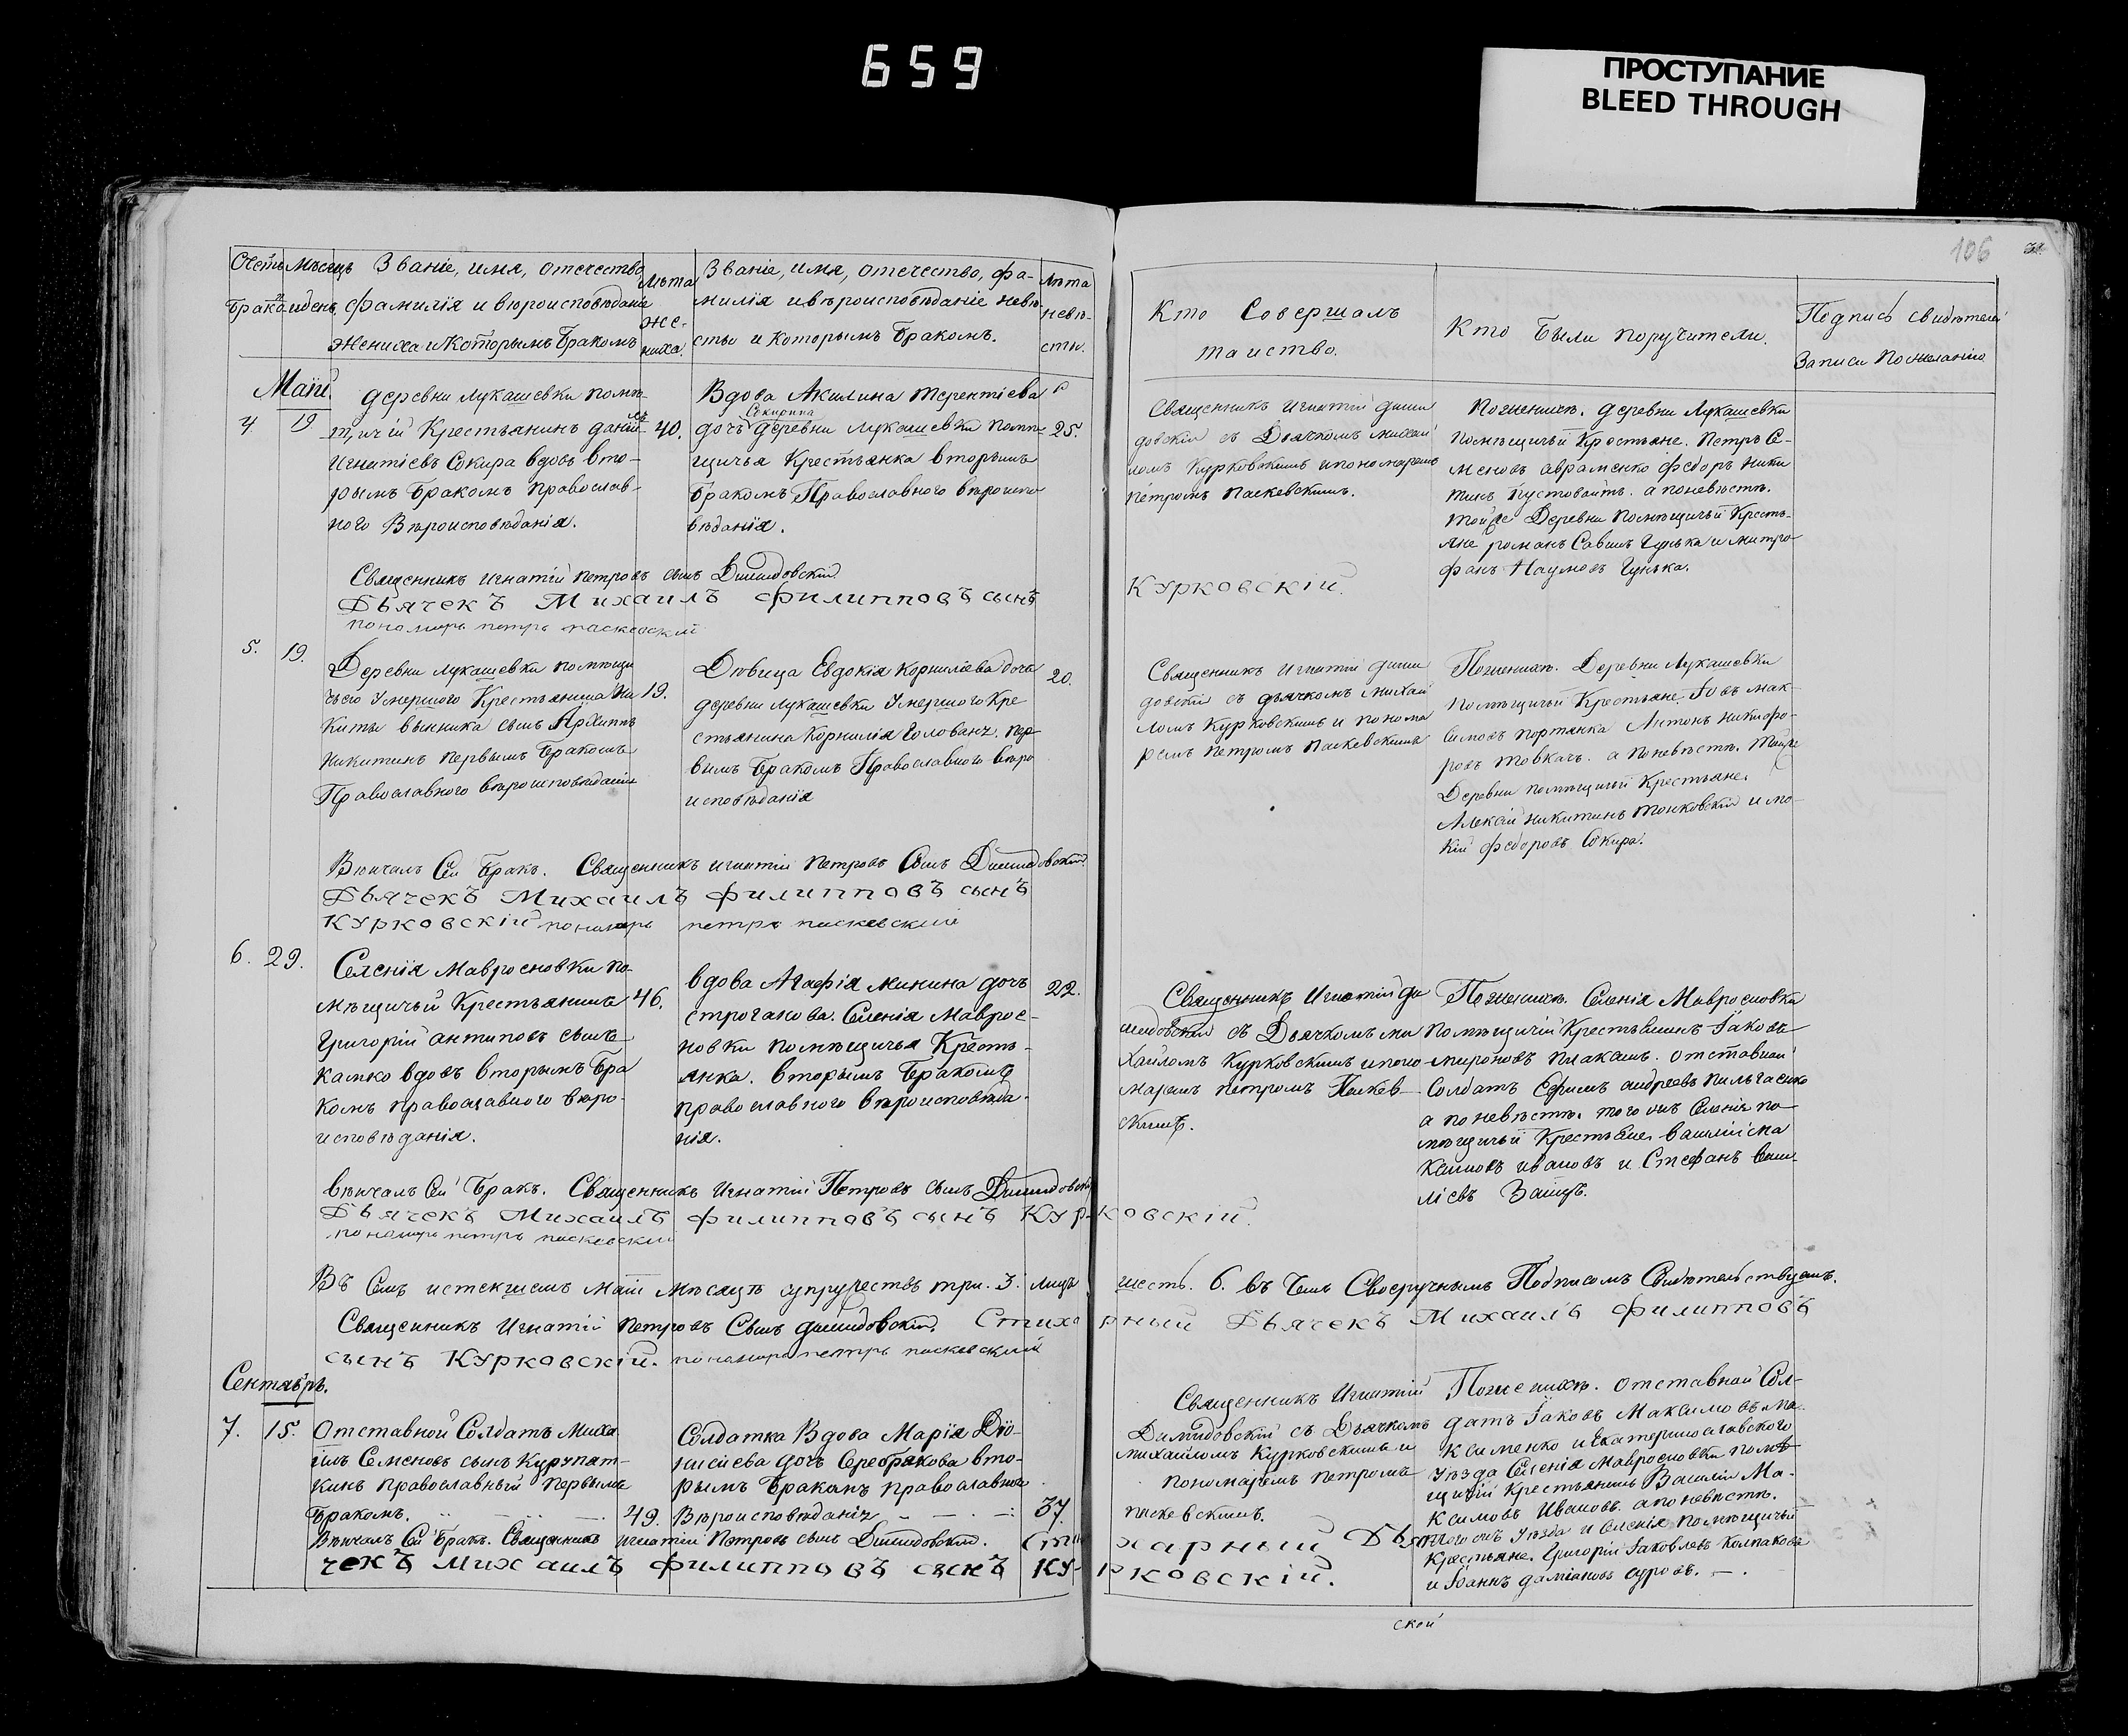 659
ПРОСТУПАНИЕ
BLEED THROUGH
106
Счетъ
браковъ
Мѣсяцъ
и день
Званіе, имя, отечество
фамилія и вѣроисповѣданіе
жениха и которымъ бракомъ
Лѣта
же-
ниха.
Званіе, имя, отечество, фа-
милія и вѣроисповѣданіе невѣ-
сты и которымъ бракомъ.
Лѣта
невѣ-
сты.
Кто Совершалъ
таинство.
Кто были поручители.
Подпись свидѣтелей
записи по желанію
Маій.
4
19
деревни Лукашевки помѣ-
щичій Крестьянинъ Даніилъ
Игнатіевъ Сокира вдовъ вто-
рымъ бракомъ православ-
ного Вѣроисповѣданія.
40.
Вдова Акилина Терентіева
Сокирина
дочь деревни Лукашевки помѣ-
щичья Крестьянка вторымъ
бракомъ Православного вѣроиспо
вѣданія.
25.
Священникъ Игнатій Дими
довскій съ Дьячкомъ Михаи
ломъ Курковскимъ и пономаремъ
Петромъ Паскевскимъ.
По женихѣ. деревни Лукашевки
помѣщичьи Крестьяне. Петръ Се-
меновъ Авраменко Федоръ Ники
тинъ Пустовойтъ. а по невѣстѣ.
той же Деревни помѣщичьи Кресть-
яне Романъ Савинъ Гунька и Митро
фанъ Наумовъ Гунька.
Священникъ Игнатій Петровъ сынъ Димидовскій
Дьячекъ Михаилъ Филипповъ сынъ Курковскій.
пономарь петръ паскевскій
5.
19.
Деревни Лукашевки помѣщи
чьего Умершого Крестьянина Ни
киты сынъ Архиппъ
Никитинъ первымъ бракомъ
Православного вѣроисповѣданія
19.
Дѣвица Евдокія Корниліева дочь
деревни Лукашевки Умершого Кре
стьянина Корнилія Голованя. пер
вымъ бракомъ Православного вѣро
исповѣданія
20.
Священникъ Игнатій Дими
довскій съ дьячкомъ Михаи
ломъ Курковскимъ и понома
ремъ Петромъ Паскевскимъ
По женихѣ. Деревни Лукашевки
помѣщичьи Крестьяне. Іовъ Мак-
симовъ Портянка Антонъ Никифо-
ровъ Товкачь. а по невѣстѣ. той же
Деревни помѣщичьи Крестьяне.
Алексій Никитинъ Тонковскій и Мо-
кій Федоровъ Сокира.
Вѣнчалъ Сей бракъ. Священникъ Игнатій Петровъ Сынъ Димидовскій.
Дьячекъ Михаилъ Филипповъ сынъ
Курковскій пономарь петръ паскевскій
6.
29.
Селенія Мавросновки по-
мѣщичьи Крестьянинъ
Григорій Антиповъ сынъ
вдовъ вторымъ бра
комъ православного вѣро-
исповѣданія.
46.
вдова Агафія Минина дочь
Строганова. Селенія Маврос-
новки помѣщичья Кресть-
янка. вторымъ бракомъ
православного вѣроисповѣда-
нія.
22.
Священникъ Игнатій Ди
мидовскій съ Дьячкомъ Ми
хаиломъ Курковскимъ и поно
маремъ Петромъ Паскев-
скимъ.
По женихѣ. Селенія Мавросновка
помѣщичій Крестьянинъ Іаковъ
Мироновъ Плаксинъ. Отставной
Солдатъ Ефимъ Андреевъ
а по невѣстѣ. того жъ Селенія по-
мѣщичьи Крестьяне. Василій Ма
Каимовъ Ивановъ и Стефанъ Васи-
ліевъ Заицъ.
вѣнчалъ Сей бракъ. Священникъ Игнатій Петровъ сынъ Димидовскій
Дьячекъ Михаилъ Филипповъ сынъ Курковскій.
пономарь петръ паскевскій
Въ Семъ истекшемъ Маіи мѣсяцѣ супружествъ три. 3. лицъ шесть. 6. въ чемъ Своеручнымъ Подписомъ Свидѣтельствуемъ.
Священникъ Игнатій Петровъ Сынъ Димидовскій. Стихарный Дьячекъ Михаилъ Филипповъ
сынъ Курковскій. пономарь петръ паскевскій
Сентябрь.
7.
15.
Отставной Солдатъ Миха
илъ Семеновъ сынъ Курупат-
кинъ православный первымъ
бракомъ.
49.
Солдатка Вдова Марія Діо-
нисіева дочь Серебрякова вто-
рымъ бракомъ православного
Вѣроисповѣданія
37.
Священникъ Игнатій
Димидовскій съ Дьячкомъ
Михаиломъ Курковскимъ и
пономаремъ Петромъ
паскевскимъ.
По женихѣ. Отставной Сол-
датъ Іаковъ Максимовъ
Клименко и Екатеринославского
Уѣзда Селенія Мавросновки помѣ
щичій Крестьянинъ Василій Ма-
ксимовъ Ивановъ. а по невѣстѣ.
того жъ Уѣзда и Селенія помѣщичьи
Крестьяне. Григорій Іаковлевъ Колпаковъ
и Іоаннъ Даміановъ Суровъ.
Вѣнчалъ Сей бракъ. Священникъ Игнатій Петровъ сынъ Димидовскій. Стихарный Дья
чекъ Михаилъ Филипповъ сынъ Курковскій.
ской